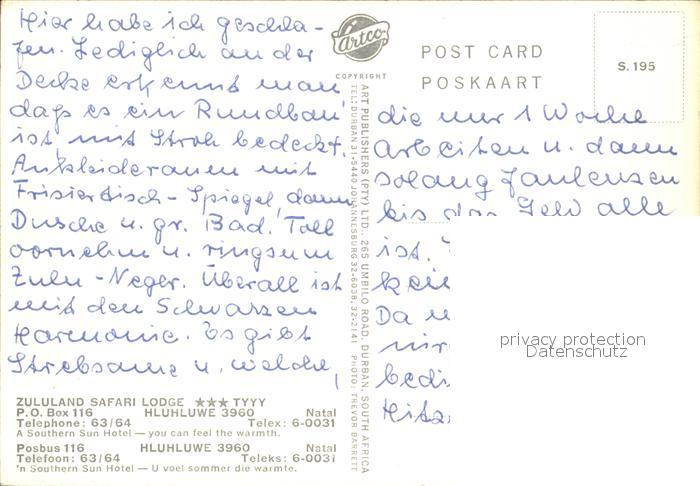 Hier habe ich geschla-
fen. Lediglich an der
Decke erkennt man
daß es ein Rundbau
ist, mit Stroh bedeckt.
Ankleideraum mit
Frisiertisch - Spiegel, dann
Dusche u. gr. Bad. Toll
vornehm u. ringsum
Zulu-Neger. Überall ist
mit den Schwarzen
Harmonie. Es gibt
Strebsame u. welche,
ZULULAND SAFARI LODGE ★★★ TYYY
P.O. Box 116 HLUHLUWE 3960 Natal
Telephone: 63/64 Telex: 6-0031
A Southern Sun Hotel — you can feel the warmth.
Posbus 116 HLUHLUWE 3960 Natal
Telefoon: 63/64 Teleks: 6-0031
'n Southern Sun Hotel — U voel sommer die warmte.
Artco
COPYRIGHT
ART PUBLISHERS (PTY) LTD., 265 UMBILO ROAD, DURBAN, SOUTH AFRICA
TEL: DURBAN 31-5440 JOHANNESBURG 32-6038, 32-2141 PHOTO: TREVOR BARRETT
POST CARD
POSKAART
S.195
die nur 1 Woche
arbeiten u. dann
solang faulenzen
bis das Geld alle
ist.
Da
bedi
Hitz
privacy protection
Datenschutz